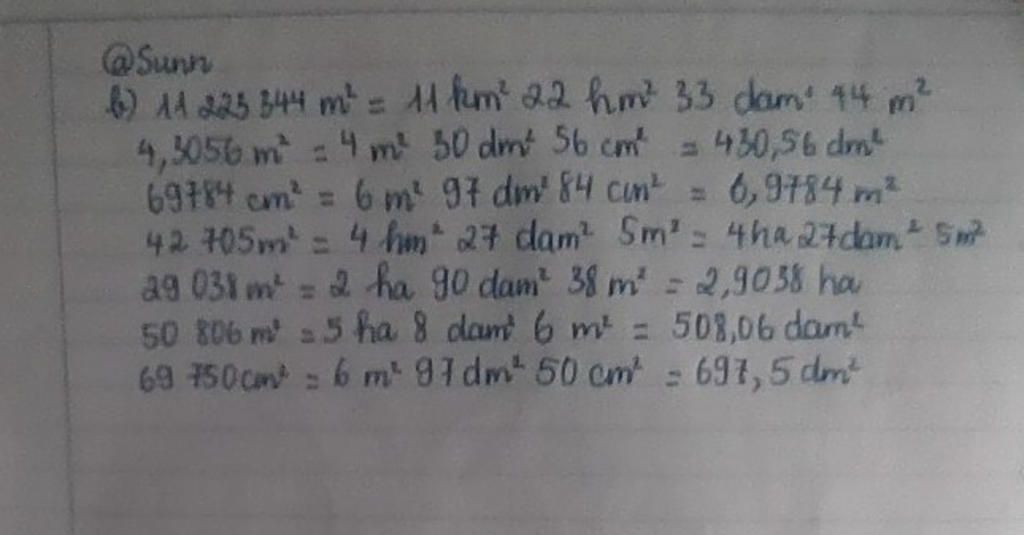 @Sunn
b) 11 223 344 m² = 11 km² 22 hm² 33 dam² 44 m²
4,3056 m² = 4 m² 30 dm² 56 cm² = 430,56 dm²
69784 cm² = 6 m² 97 dm² 84 cm² = 6,9784 m²
42 705 m² = 4 hm² 27 dam² 5 m² = 4 ha 27 dam² 5 m²
29 038 m² = 2 ha 90 dam² 38 m² = 2,9038 ha
50 806 m² = 5 ha 8 dam² 6 m² = 508,06 dam²
69 750 cm² = 6 m² 97 dm² 50 cm² = 697,5 dm²